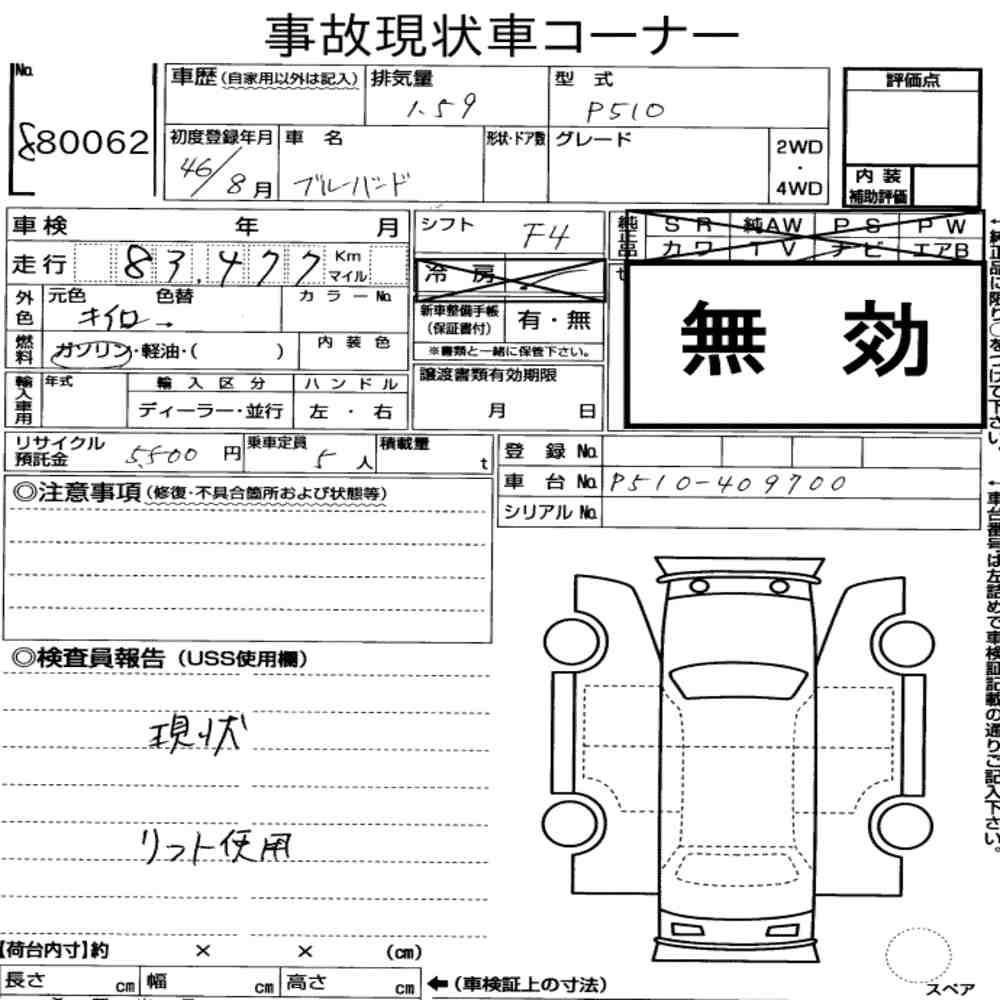 事故現状車コーナー
No.
80062
車歴(自家用以外は記入) 排気量 型 式 評価点
1.59 P510
初度登録年月 車 名 形状・ドア数 グレード 2WD・4WD
46/8月 ブルーバード
内装補助評価
車検 年 月 シフト F4 純正品 SR 純AW PS PW
カワ TV ナビ エアB
走行 83,477 Km マイル 冷房
無 効
外色 元色 色替 カラーNo. 新車整備手帳(保証書付) 有・無
キイロ→
燃料 ガソリン・軽油・( ) 内装色 ※書類と一緒に保管下さい。
輸入車用 年式 輸入区分 ハンドル 譲渡書類有効期限
ディーラー・並行 左・右 月 日
リサイクル預託金 5,500円 乗車定員 5人 積載量 t
登録 No.
車台 No. P510-409700
シリアル No.
◎注意事項(修復・不具合箇所および状態等)
◎検査員報告(USS使用欄)
現状
リフト使用
【荷台内寸】約 × × (cm)
長さ cm 幅 cm 高さ cm ←(車検証上の寸法)
スペア
←純正品に限り○をつけて下さい。
←車台番号は左詰めで車検証記載の通りご記入下さい。